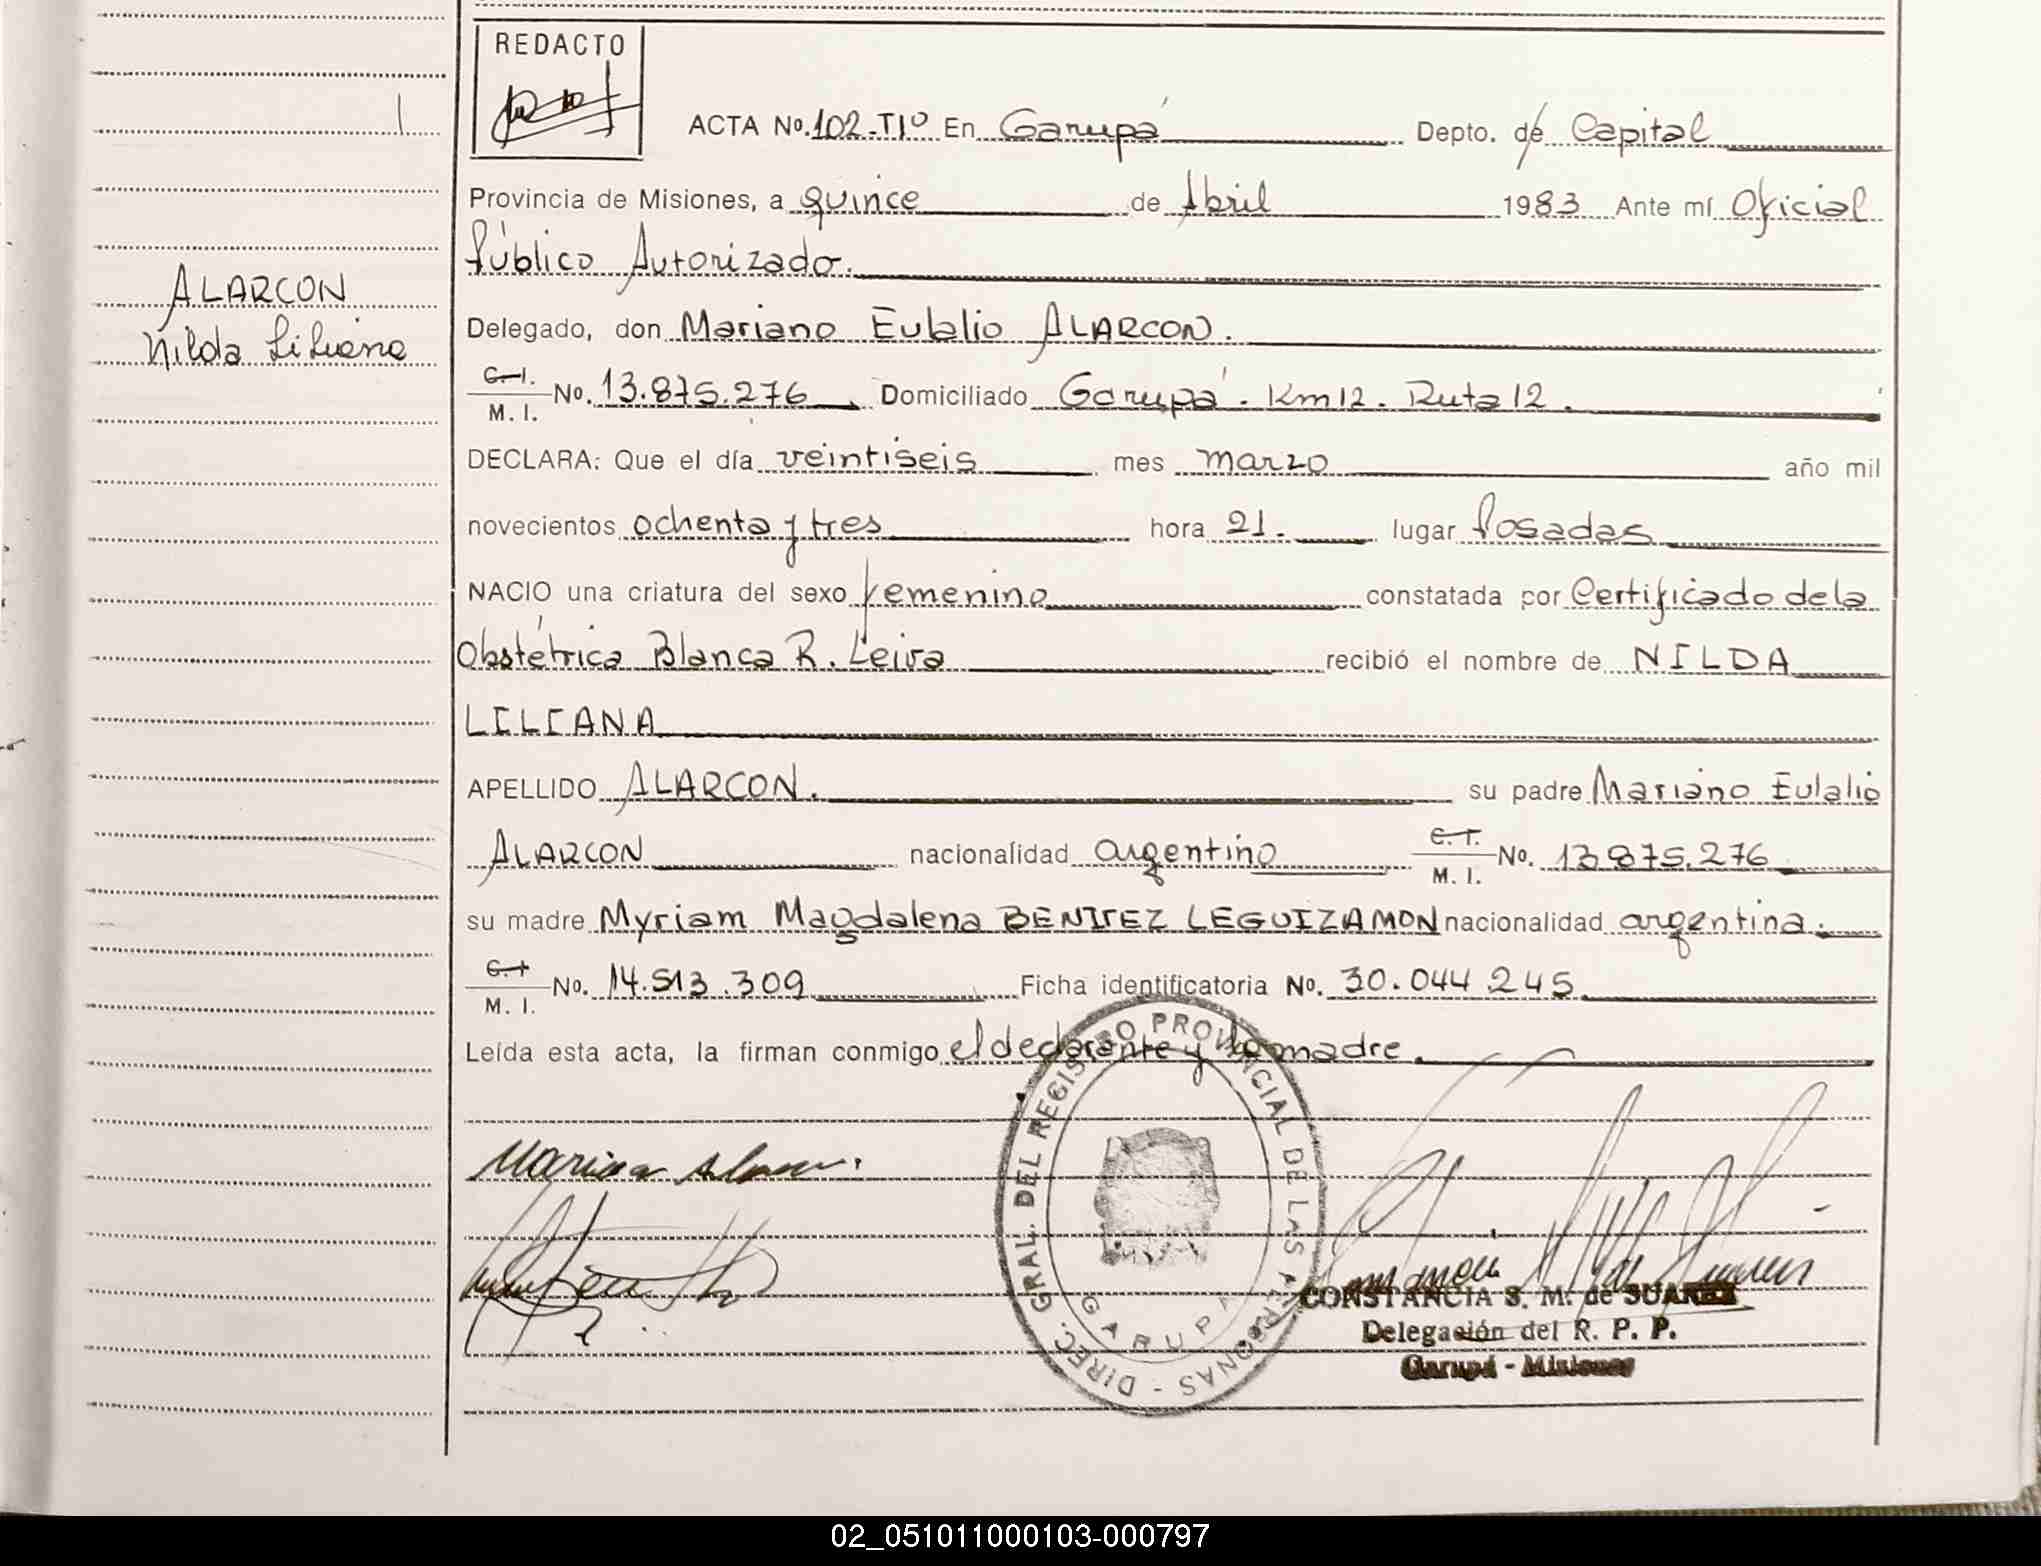 REDACTO
ACTA No. 102-T1º En Garupá Depto. de Capital
Provincia de Misiones, a quince de Abril 1983 Ante mí Oficial
Público Autorizado.
ALARCON
Nilda Liliana
Delegado, don Mariano Eulalio ALARCON.
C. I. M. I. No. 13.875.276 Domiciliado Garupá. Km 12. Ruta 12.
DECLARA: Que el día veintiseis mes marzo año mil
novecientos ochenta y tres hora 21. lugar Posadas
NACIO una criatura del sexo femenino constatada por Certificado de la
Obstétrica Blanca R. Leiva recibió el nombre de NILDA
LILIANA
APELLIDO ALARCON. su padre Mariano Eulalio
ALARCON nacionalidad argentino C. I. M. I. No. 13.875.276
su madre Myriam Magdalena BENITEZ LEGUIZAMON nacionalidad argentina.
C. I. M. I. No. 14.513.309 Ficha identificatoria No. 30.044.245
Leída esta acta, la firman conmigo el declarante y la madre.
DIREC. GRAL. DEL REGISTRO PROVINCIAL DE LAS PERSONAS -
GARUPA
CONSTANCIA S. M. de SUAREZ
Delegación del R. P. P.
Garupá - Misiones
02_051011000103-000797